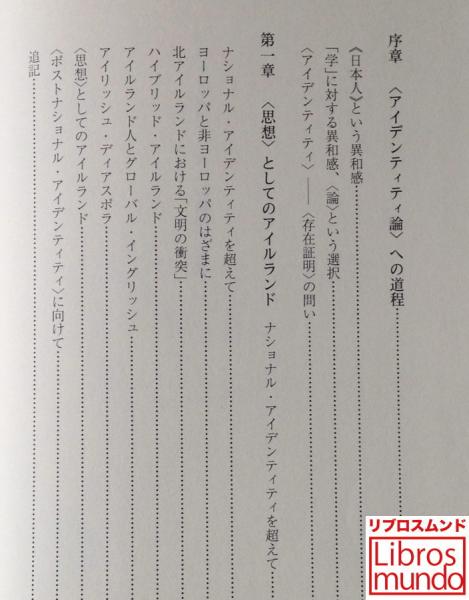 序章 〈アイデンティティ論〉への道程
《日本人》という異和感
「学」に対する異和感、〈論〉という選択
〈アイデンティティ〉――〈存在証明〉の問い
第一章 〈思想〉としてのアイルランド ナショナル・アイデンティティを超えて
ナショナル・アイデンティティを超えて
ヨーロッパと非ヨーロッパのはざまに
北アイルランドにおける「文明の衝突」
ハイブリッド・アイルランド
アイルランド人とグローバル・イングリッシュ
アイリッシュ・ディアスポラ
〈思想〉としてのアイルランド
〈ポストナショナル・アイデンティティ〉に向けて
追記
リブロスムンド
Libros
mundo